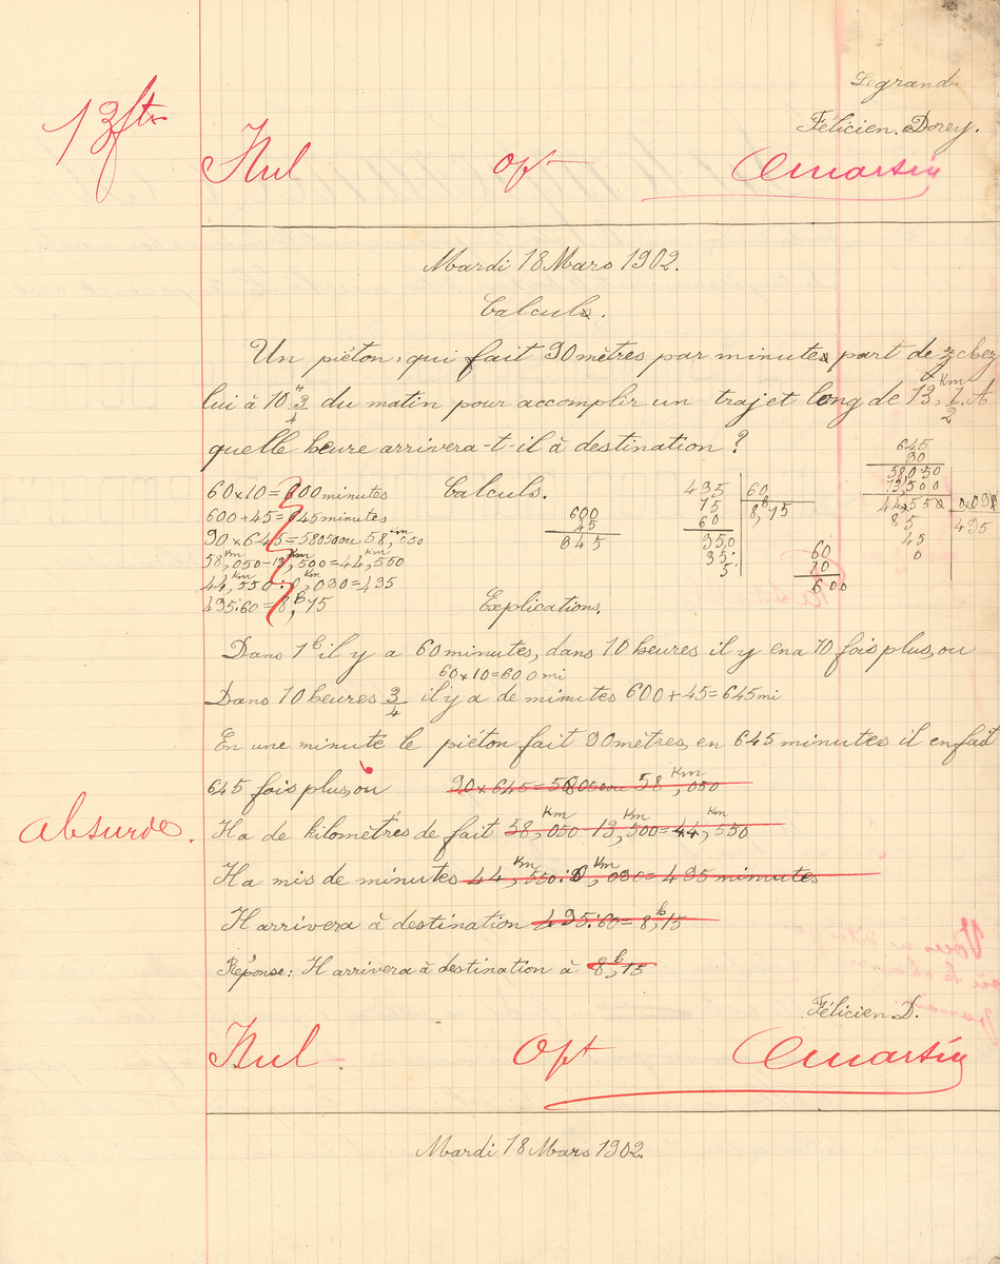 Legrand.
13 fts
Félicien. Dorey.
Nul opt Cmartin
Mardi 18 Mars 1902.
Calculs.
Un piéton, qui fait 90 mètres par minutes part de chez
lui à 10 h 3/4 du matin pour accomplir un trajet long de 13 Km, 1/2. A
quelle heure arrivera-t-il à destination ?
60×10=600 minutes
600+45=645 minutes
90×645=58050 ou 58,Km 050
58,Km 050-13,Km 500=44,Km 500
44,Km 550:0,Km 090=495
495:60=8,h 15
Calculs.
600
45
645
495 60
15 8,h 15
60
350
35
5
60
10
600
645
90
58050
13,500
44,550 0,090
85 495
45
0
Explications.
Dans 1 h il y a 60 minutes, dans 10 heures il y en a 10 fois plus, ou
60×10=600 mi
Dans 10 heures 3/4 il y a de minutes 600+45=645 mi
En une minute le piéton fait 90 mètres, en 645 minutes il en fait
645 fois plus, ou 90×645=58050 ou 58,Km 050
absurde.
Il a de kilomètres de fait 58,Km 050-13,Km 500=44,Km 550
Il a mis de minutes 44,Km 550:0,Km 090=495 minutes
Il arrivera à destination 495:60=8,h 15
Réponse: Il arrivera à destination à 8,h 15
Félicien D.
Nul opt Cmartin
Mardi 18 Mars 1902.